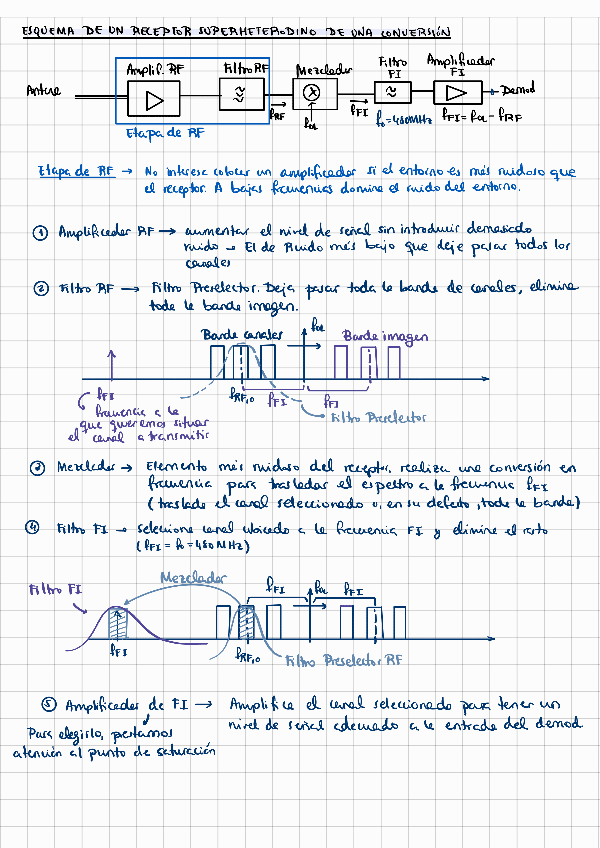 ESQUEMA DE UN RECEPTOR SUPERHETERODINO DE UNA CONVERSIÓN
Antena
Amplif. RF
Filtro RF
Mezclador
Filtro FI
Amplificador FI
Demod
fRF
fOL
fFI
f₀=480MHz
fFI = fOL - fRF
Etapa de RF
Etapa de RF → No interesa colocar un amplificador si el entorno es más ruidoso que
el receptor. A bajas frecuencias domina el ruido del entorno.
① Amplificador RF → aumentar el nivel de señal sin introducir demasiado
ruido → El de Ruido más bajo que deje pasar todos los
canales
② Filtro RF → Filtro Preselector. Deja pasar toda la banda de canales, elimina
toda la banda imagen.
Banda canales
fOL
Banda imagen
fFI
fRF,0
fFI
fFI
Filtro Preselector
frecuencia a la
que queremos situar
el canal a transmitir
③ Mezclador → Elemento más ruidoso del receptor, realiza una conversión en
frecuencia para trasladar el espectro a la frecuencia fFI
(traslada el canal seleccionado o, en su defecto, toda la banda)
④ Filtro FI → selecciona canal ubicado a la frecuencia FI y elimina el resto
(fFI = f₀ = 480MHz)
Filtro FI
Mezclador
fFI
fOL
fFI
fFI
fRF,0
Filtro Preselector RF
⑤ Amplificador de FI → Amplifica el canal seleccionado para tener un
nivel de señal adecuado a la entrada del demod.
Para elegirlo, prestamos
atención al punto de saturación